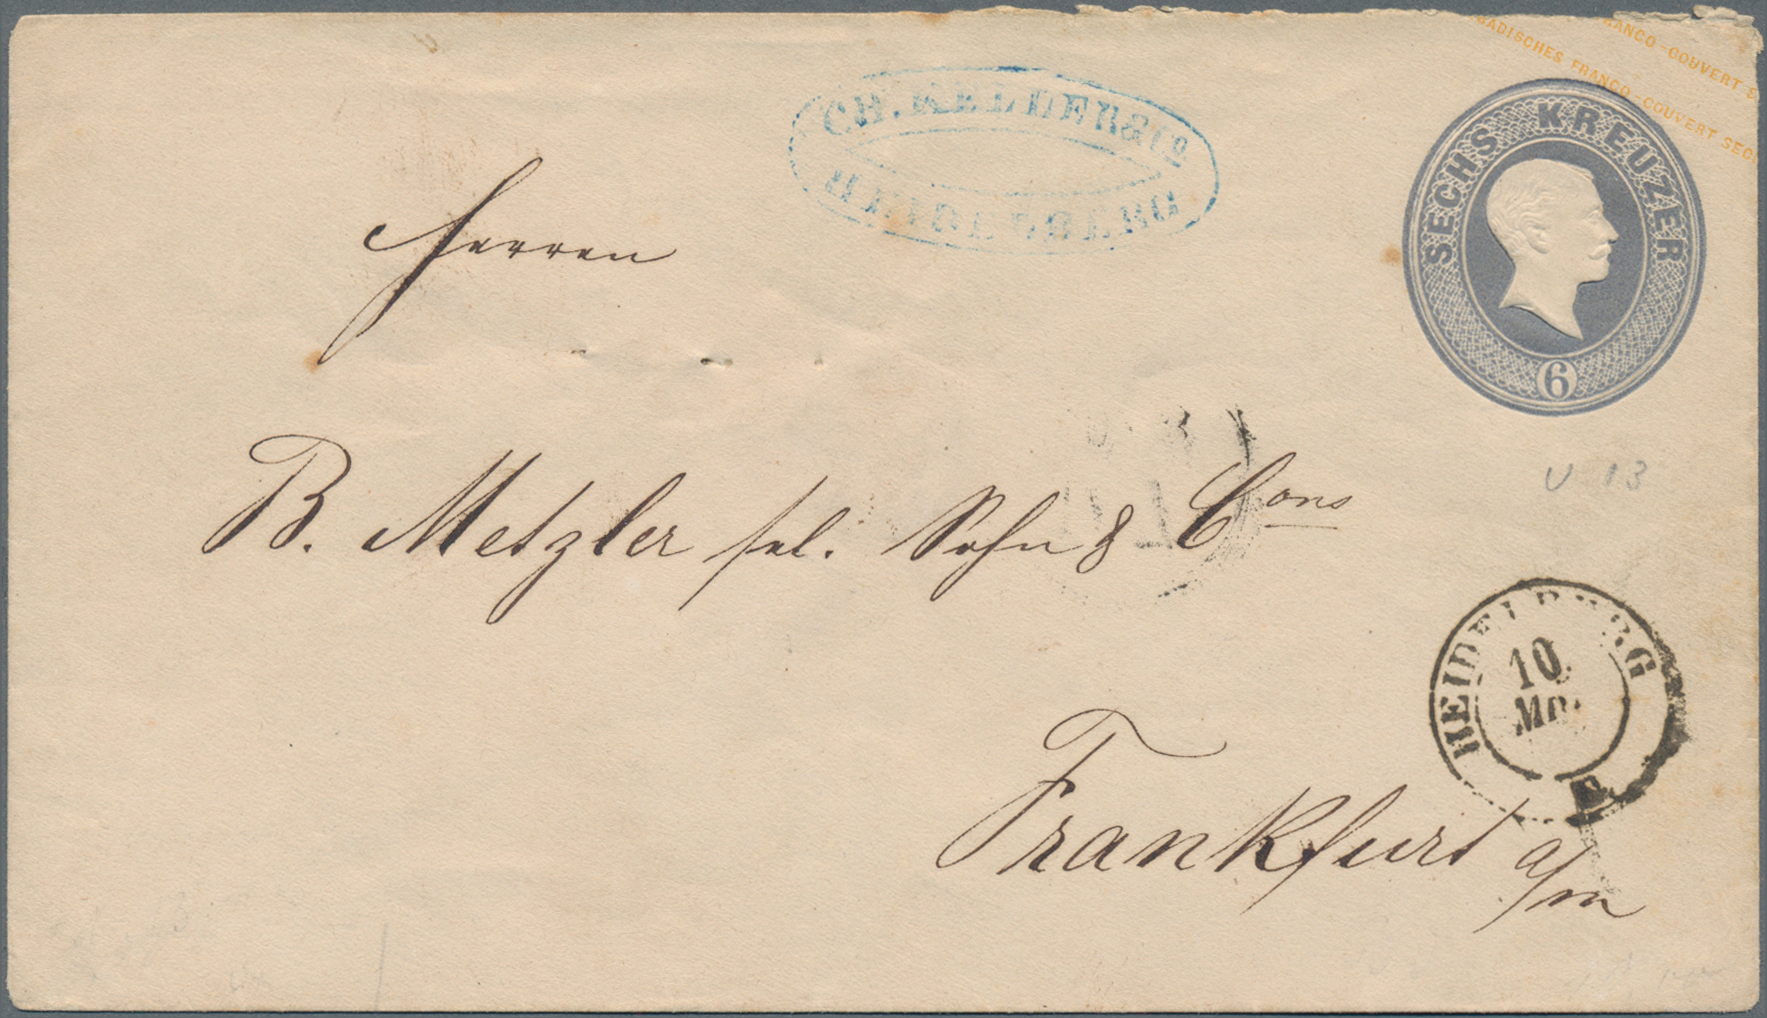 FRANCO-COUVERT S
BADISCHES FRANCO-COUVERT SECH
CH. KELLER & Co
HEIDELBERG
SECHS KREUZER
6
Herren
U 13
B. Metzler sel. Sohn & Cons
HEIDELBERG
10
Frankfurt a/m